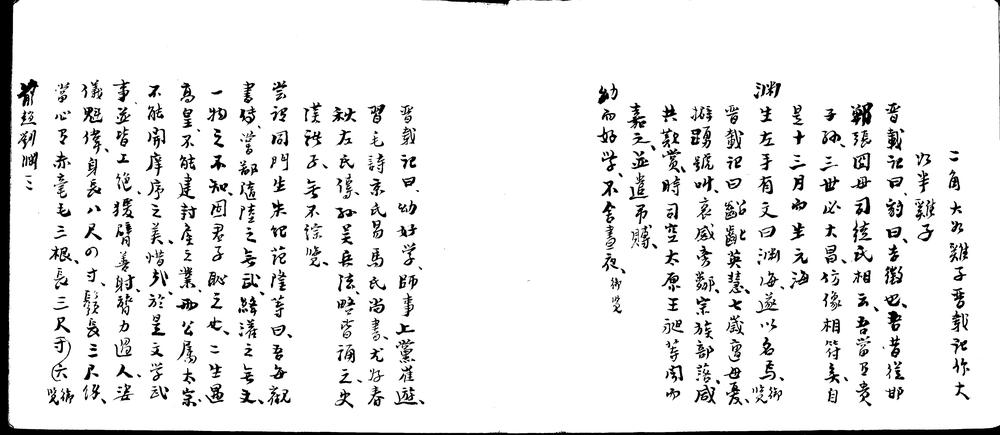 二角大如雞子晉載記作大
如半雞子
晉載記曰豹曰吉徵也吾昔從邯
鄲張冏母司徒氏相云吾當有貴
子孫、三世必大昌仿像相符矣自
是十三月而生元海
淵生左手有文曰淵海遂以名焉、御覽
晉載記曰齠齔英慧、七歲遭母憂、
擗踴號叫、哀感旁鄰、宗族部落咸
共歎賞、時司空太原王昶等聞而
嘉之、並遣弔賻、
幼而好學、不舍晝夜、御覽
晉載記曰、幼好學、師事上黨崔遊、
習毛詩京氏易馬氏尚書、尤好春
秋左氏傳、孫吳兵法、略皆誦之、史
漢諸子、無不綜覽、
嘗謂同門生朱紀范隆等曰、吾每觀
書傳、嘗鄙隨陸之無武、絳灌之無文、
一物之不知、固君子恥之也、二生遇
高皇、不能建封侯之業、兩公屬太宗、
不能開庠序之美、惜哉於是文學武
事、並皆工絕、猨臂善射、膂力過人、姿
儀魁偉、身長八尺四寸、鬚長三尺餘、
當心有赤毫毛三根、長三尺寸六、御覽
前趙劉淵 三